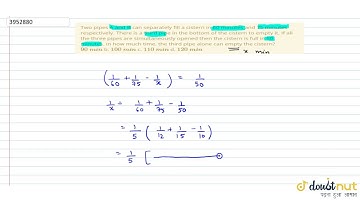 3952880
Two pipes A and B can separately fill a cistern in 60 minutes and 75 minutes
respectively. There is a third pipe in the bottom of the cistern to empty it. If all
the three pipes are simultaneously opened then the cistern is full in 50
minutes. In how much time, the third pipe alone can empty the cistern?
90 min b. 100 min c. 110 min d. 120 min
x min
(1/60 + 1/75 - 1/x) = 1/50
1/x = 1/60 + 1/75 - 1/50
= 1/5 (1/12 + 1/15 - 1/10)
= 1/5 [
doubtnut